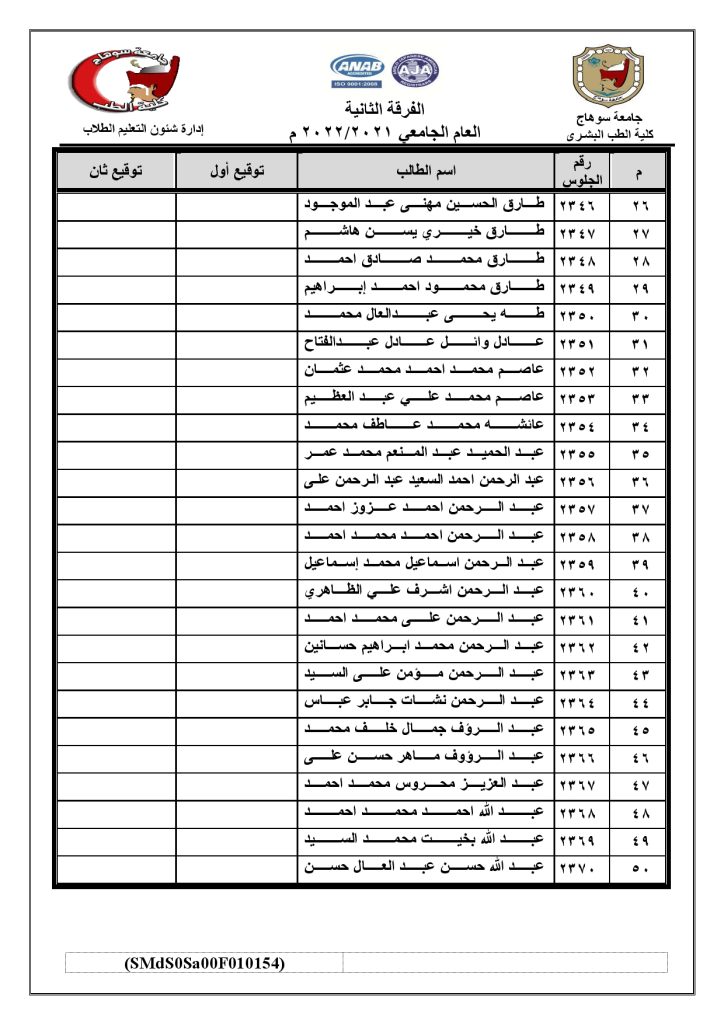 جامعة سوهاج
كلية الطب
ANAB
ACCREDITED
ISO 9001:2008
AJA
الفرقة الثانية
العام الجامعي ٢٠٢٢/٢٠٢١ م
جامعة سوهاج
كلية الطب البشرى
إدارة شئون التعليم الطلاب
م رقم الجلوس اسم الطالب توقيع أول توقيع ثان
٢٦ ٢٣٤٦ طارق الحسين مهنى عبد الموجود
٢٧ ٢٣٤٧ طارق خيري يسن هاشم
٢٨ ٢٣٤٨ طارق محمد صادق احمد
٢٩ ٢٣٤٩ طارق محمود احمد إبراهيم
٣٠ ٢٣٥٠ طه يحى عبدالعال محمد
٣١ ٢٣٥١ عادل وائل عادل عبدالفتاح
٣٢ ٢٣٥٢ عاصم محمد احمد محمد عثمان
٣٣ ٢٣٥٣ عاصم محمد علي عبد العظيم
٣٤ ٢٣٥٤ عائشه محمد عاطف محمد
٣٥ ٢٣٥٥ عبد الحميد عبد المنعم محمد عمر
٣٦ ٢٣٥٦ عبد الرحمن احمد السعيد عبد الرحمن على
٣٧ ٢٣٥٧ عبد الرحمن احمد عزوز احمد
٣٨ ٢٣٥٨ عبد الرحمن احمد محمد احمد
٣٩ ٢٣٥٩ عبد الرحمن اسماعيل محمد إسماعيل
٤٠ ٢٣٦٠ عبد الرحمن اشرف علي الظاهري
٤١ ٢٣٦١ عبد الرحمن على محمد احمد
٤٢ ٢٣٦٢ عبد الرحمن محمد ابراهيم حسانين
٤٣ ٢٣٦٣ عبد الرحمن مؤمن على السيد
٤٤ ٢٣٦٤ عبد الرحمن نشات جابر عباس
٤٥ ٢٣٦٥ عبد الرؤف جمال خلف محمد
٤٦ ٢٣٦٦ عبد الرؤوف ماهر حسن على
٤٧ ٢٣٦٧ عبد العزيز محروس محمد احمد
٤٨ ٢٣٦٨ عبد الله احمد محمد احمد
٤٩ ٢٣٦٩ عبد الله بخيت محمد السيد
٥٠ ٢٣٧٠ عبد الله حسن عبد العال حسن
(SMdS0Sa00F010154)